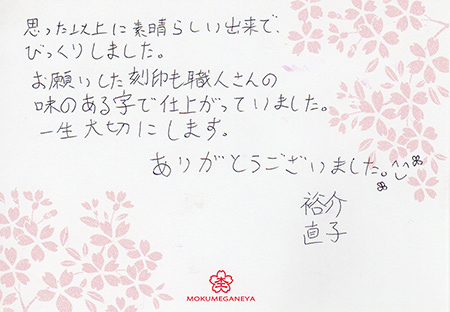 思った以上に素晴らしい出来で、
びっくりしました。
お願いした刻印も職人さんの
味のある字で仕上がっていました。
一生大切にします。
ありがとうございました。
裕介
直子
MOKUMEGANEYA